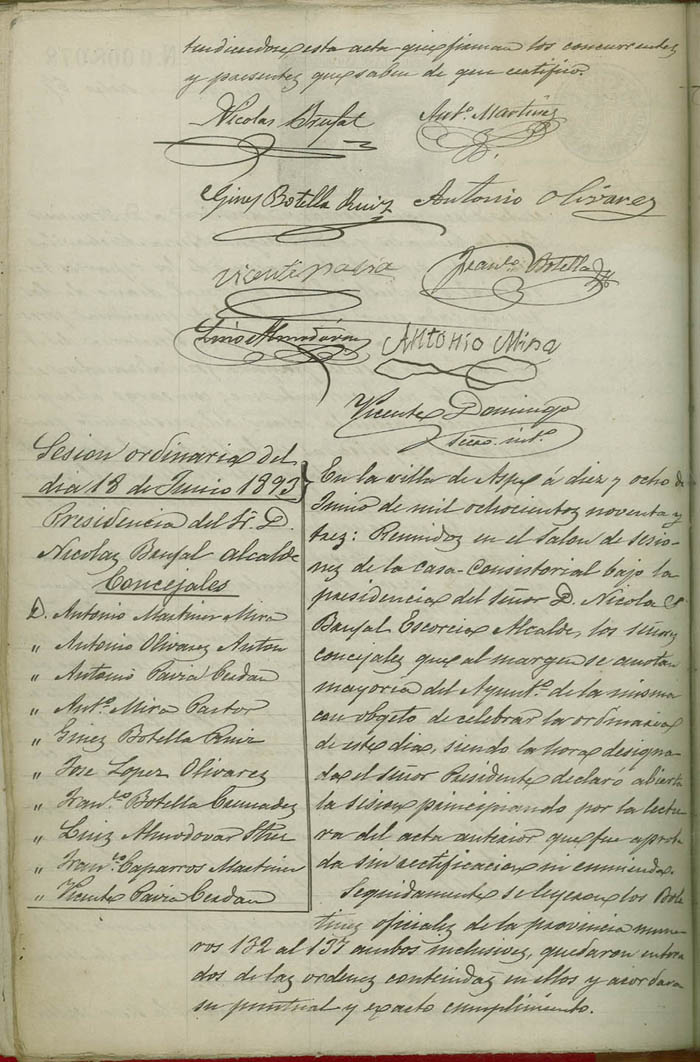 tendiendose esta acta que firman los concurrentes
y presentes que saben de que certifico.
Nicolas Brufal Antº. Martinez
Ginés Botella Ruiz Antonio Olivarez
Vicente Pavia Franco. Botella
Luis Almodóvar Antonio Mira
Vicente Domingo
Srio. intº.
Sesion ordinaria del
dia 18 de Junio 1893
Presidencia del Sr. D.
Nicolas Brufal alcalde
Concejales
D. Antonio Martinez Mira
" Antonio Olivarez Anton
" Antonio Pavia Cerdán
" Antº. Mira Pastor
" Ginez Botella Ruiz
" Jose Lopez Olivarez
" Francº. Botella Cremadez
" Luiz Almodovar
" Francº. Caparros Martinez
" Vicente Pavia Cerdan
En la villa de Aspe á diez y ocho de
Junio de mil ochocientos noventa y
trez: Reunidoz en el salon de sesio-
nez de la casa-consistorial bajo la
presidencia del señor D. Nicolas
Brufal Escorcia Alcalde, los señorez
concejales que al margen se anotan
mayoria del Ayuntº. de la misma
con objeto de celebrar la ordinaria
de este dia, siendo la hora designa-
da el señor Presidente declaró abierta
la sision principiando por la lectu-
ra del acta anterior que fue aproba-
da sin rectificacion ni enmienda.
Seguidamente se leyeron los Bole
tinez oficialez de la provincia nume-
ros 132 al 137 ambos inclusivez, quedaron entera
dos de las ordenez contenidaz en ellos y acordaron
su puntual y exacto cumplimiento.